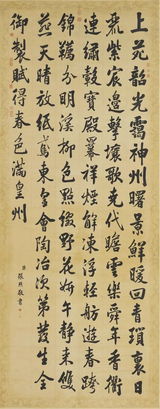 上苑韶光靄神州曙景鮮暖回青瑣裏日
飛紫宸邊擊壤歌堯代賡雲樂舜年香衢
連繡轂寶殿裊祥煙解凍浮輕舫遊春跨
錦韉分明溪柳色點綴野花妍午靜來雙
燕天晴放紙鳶東皇會陶冶次第發生全
御製賦得春色滿皇州
臣張照敬書